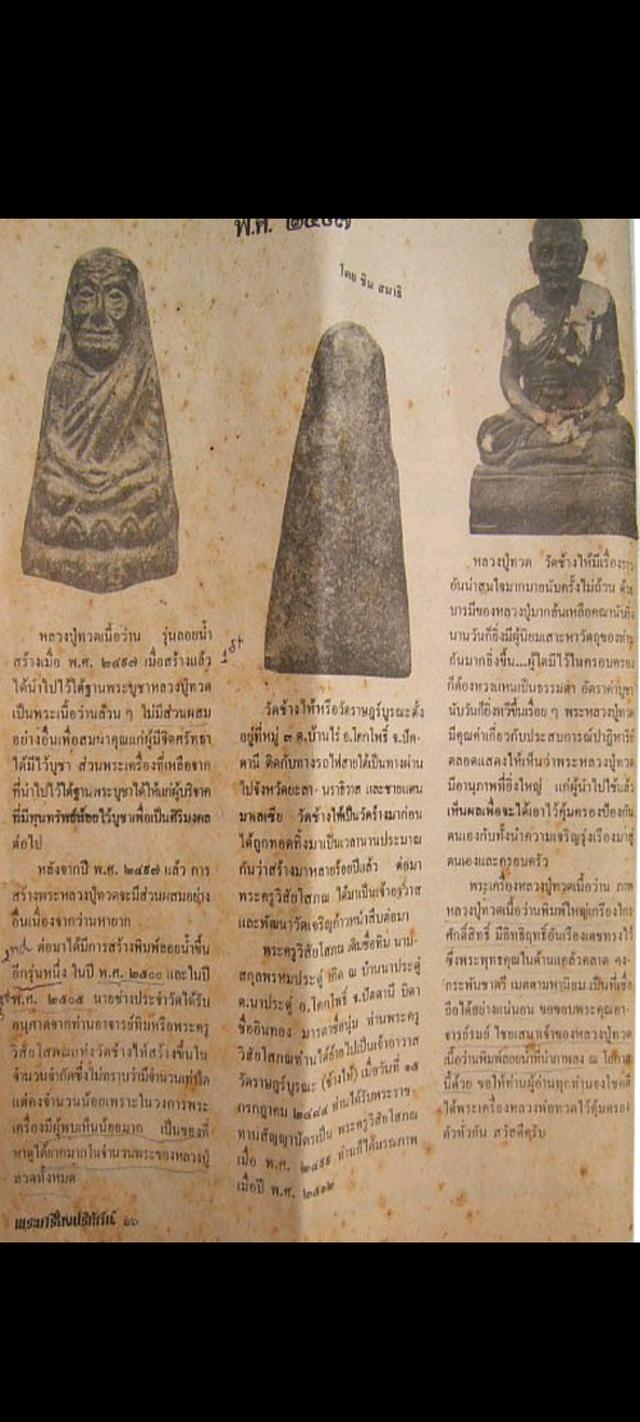 พ.ศ. ๒๔๙๗
โดย ชิน สมาธิ
หลวงปู่ทวดเนื้อว่าน รุ่นลอยน้ำ
สร้างเมื่อ พ.ศ. ๒๔๙๗ เมื่อสร้างแล้ว
1st
ได้นำไปไว้ใต้ฐานพระบูชาหลวงปู่ทวด
เป็นพระเนื้อว่านล้วน ๆ ไม่มีส่วนผสม
อย่างอื่นเพื่อสมนาคุณแก่ผู้มีจิตศรัทธา
ได้มีไว้บูชา ส่วนพระเครื่องที่เหลือจาก
ที่นำไปไว้ใต้ฐานพระบูชาได้ให้แก่ผู้บริจาค
ที่มีทุนทรัพย์น้อยไว้บูชาเพื่อเป็นศิริมงคล
ต่อไป
หลังจากปี พ.ศ. ๒๔๙๗ แล้ว การ
สร้างพระหลวงปู่ทวดจะมีส่วนผสมอย่าง
อื่นเนื่องจากว่านหายาก
ต่อมาได้มีการสร้างพิมพ์ลอยน้ำขึ้น
อีกรุ่นหนึ่ง ในปี พ.ศ. ๒๕๐๐ และในปี
พ.ศ. ๒๕๐๕ นายช่างประจำวัดได้รับ
อนุศาตจากท่านอาจารย์ทิมหรือพระครู
วิสัยโสภณแห่งวัดช้างให้สร้างขึ้นใน
จำนวนจำกัดซึ่งไม่ทราบว่ามีจำนวนเท่าใด
แต่คงจำนวนน้อยเพราะในวงการพระ
เครื่องมีผู้พบเห็นน้อยมาก เป็นของที่
หาดูได้ยากมากในจำนวนพระของหลวงปู่
ทวดทั้งหมด
วัดช้างให้หรือวัดราษฎร์บูรณะตั้ง
อยู่ที่หมู่ ๓ ต.บ้านไร่ อ.โคกโพธิ์ จ.ปัต-
ตานี ติดกับทางรถไฟสายใต้เป็นทางผ่าน
ไปจังหวัดยะลา- นราธิวาส และชายแดน
มาเลเซีย วัดช้างให้เป็นวัดร้างมาก่อน
ได้ถูกทอดทิ้งมาเป็นเวลานานประมาณ
กันว่าสร้างมาหลายร้อยปีแล้ว ต่อมา
พระครูวิสัยโสภณ ได้มาเป็นเจ้าอาวาส
และพัฒนาวัดเจริญก้าวหน้าสืบต่อมา
พระครูวิสัยโสภณ เดิมชื่อทิม นาม-
สกุลพรหมประดู่ เกิด ณ บ้านนาประดู่
ต.นาประดู่ อ.โคกโพธิ์ จ.ปัตตานี บิดา
ชื่ออินทอง มารดาชื่อนุ่ม ท่านพระครู
วิสัยโสภณท่านได้ย้ายไปเป็นเจ้าอาวาส
วัดราษฎร์บูรณะ (ช้างให้) เมื่อวันที่ ๑๕
กรกฎาคม ๒๔๘๔ ท่านได้รับพระราช-
ทานสัญญาบัตรเป็น พระครูวิสัยโสภณ
เมื่อ พ.ศ. ๒๔๙๙ ท่านก็ได้มรณภาพ
เมื่อปี พ.ศ. ๒๕๑๒
หลวงปู่ทวด วัดช้างให้มีเรื่องราว
อันน่าสนใจมากมายนับครั้งไม่ถ้วน ด้วย
บารมีของหลวงปู่มากล้นเหลือคณานับยิ่ง
นานวันก็ยิ่งมีผู้นิยมเสาะหาวัตถุของท่าน
กันมากยิ่งขึ้น....ผู้ใดมีไว้ในครอบครอง
ก็ต้องหวงแหนเป็นธรรมดา อัตราค่าบูชา
นับวันก็ยิ่งทวีขึ้นเรื่อย ๆ พระหลวงปู่ทวด
มีคุณค่าเกี่ยวกับประสบการณ์ปาฏิหาริย์
ตลอดแสดงให้เห็นว่าพระหลวงปู่ทวด
มีอานุภาพที่ยิ่งใหญ่ แก่ผู้นำไปใช้แล้ว
เห็นผลเพื่อจะได้เอาไว้คุ้มครองป้องกัน
ตนเองกับทั้งนำความเจริญรุ่งเรืองมาสู่
ตนเองและครอบครัว
พระเครื่องหลวงปู่ทวดเนื้อว่าน ภาพ
หลวงปู่ทวดเนื้อว่านพิมพ์ใหญ่เกรียงไกร
ศักดิ์สิทธิ์ มีอิทธิฤทธิ์อันเรืองเดชทรงไว้
ซึ่งพระพุทธคุณในด้านแคล้วคลาด คง-
กระพันชาตรี เมตตามหานิยม เป็นที่เชื่อ
ถือได้อย่างแน่นอน ขอขอบพระคุณอา-
จารย์รมย์ ไชยเสนาเจ้าของหลวงปู่ทวด
เนื้อว่านพิมพ์ลอยน้ำที่นำภาพลง ณ โอกาส
นี้ด้วย ขอให้ท่านผู้อ่านทุกท่านจงโชคดี
ได้พระเครื่องหลวงพ่อทวดไว้คุ้มครอง
ตัวทั่วกัน สวัสดีครับ
๑๖